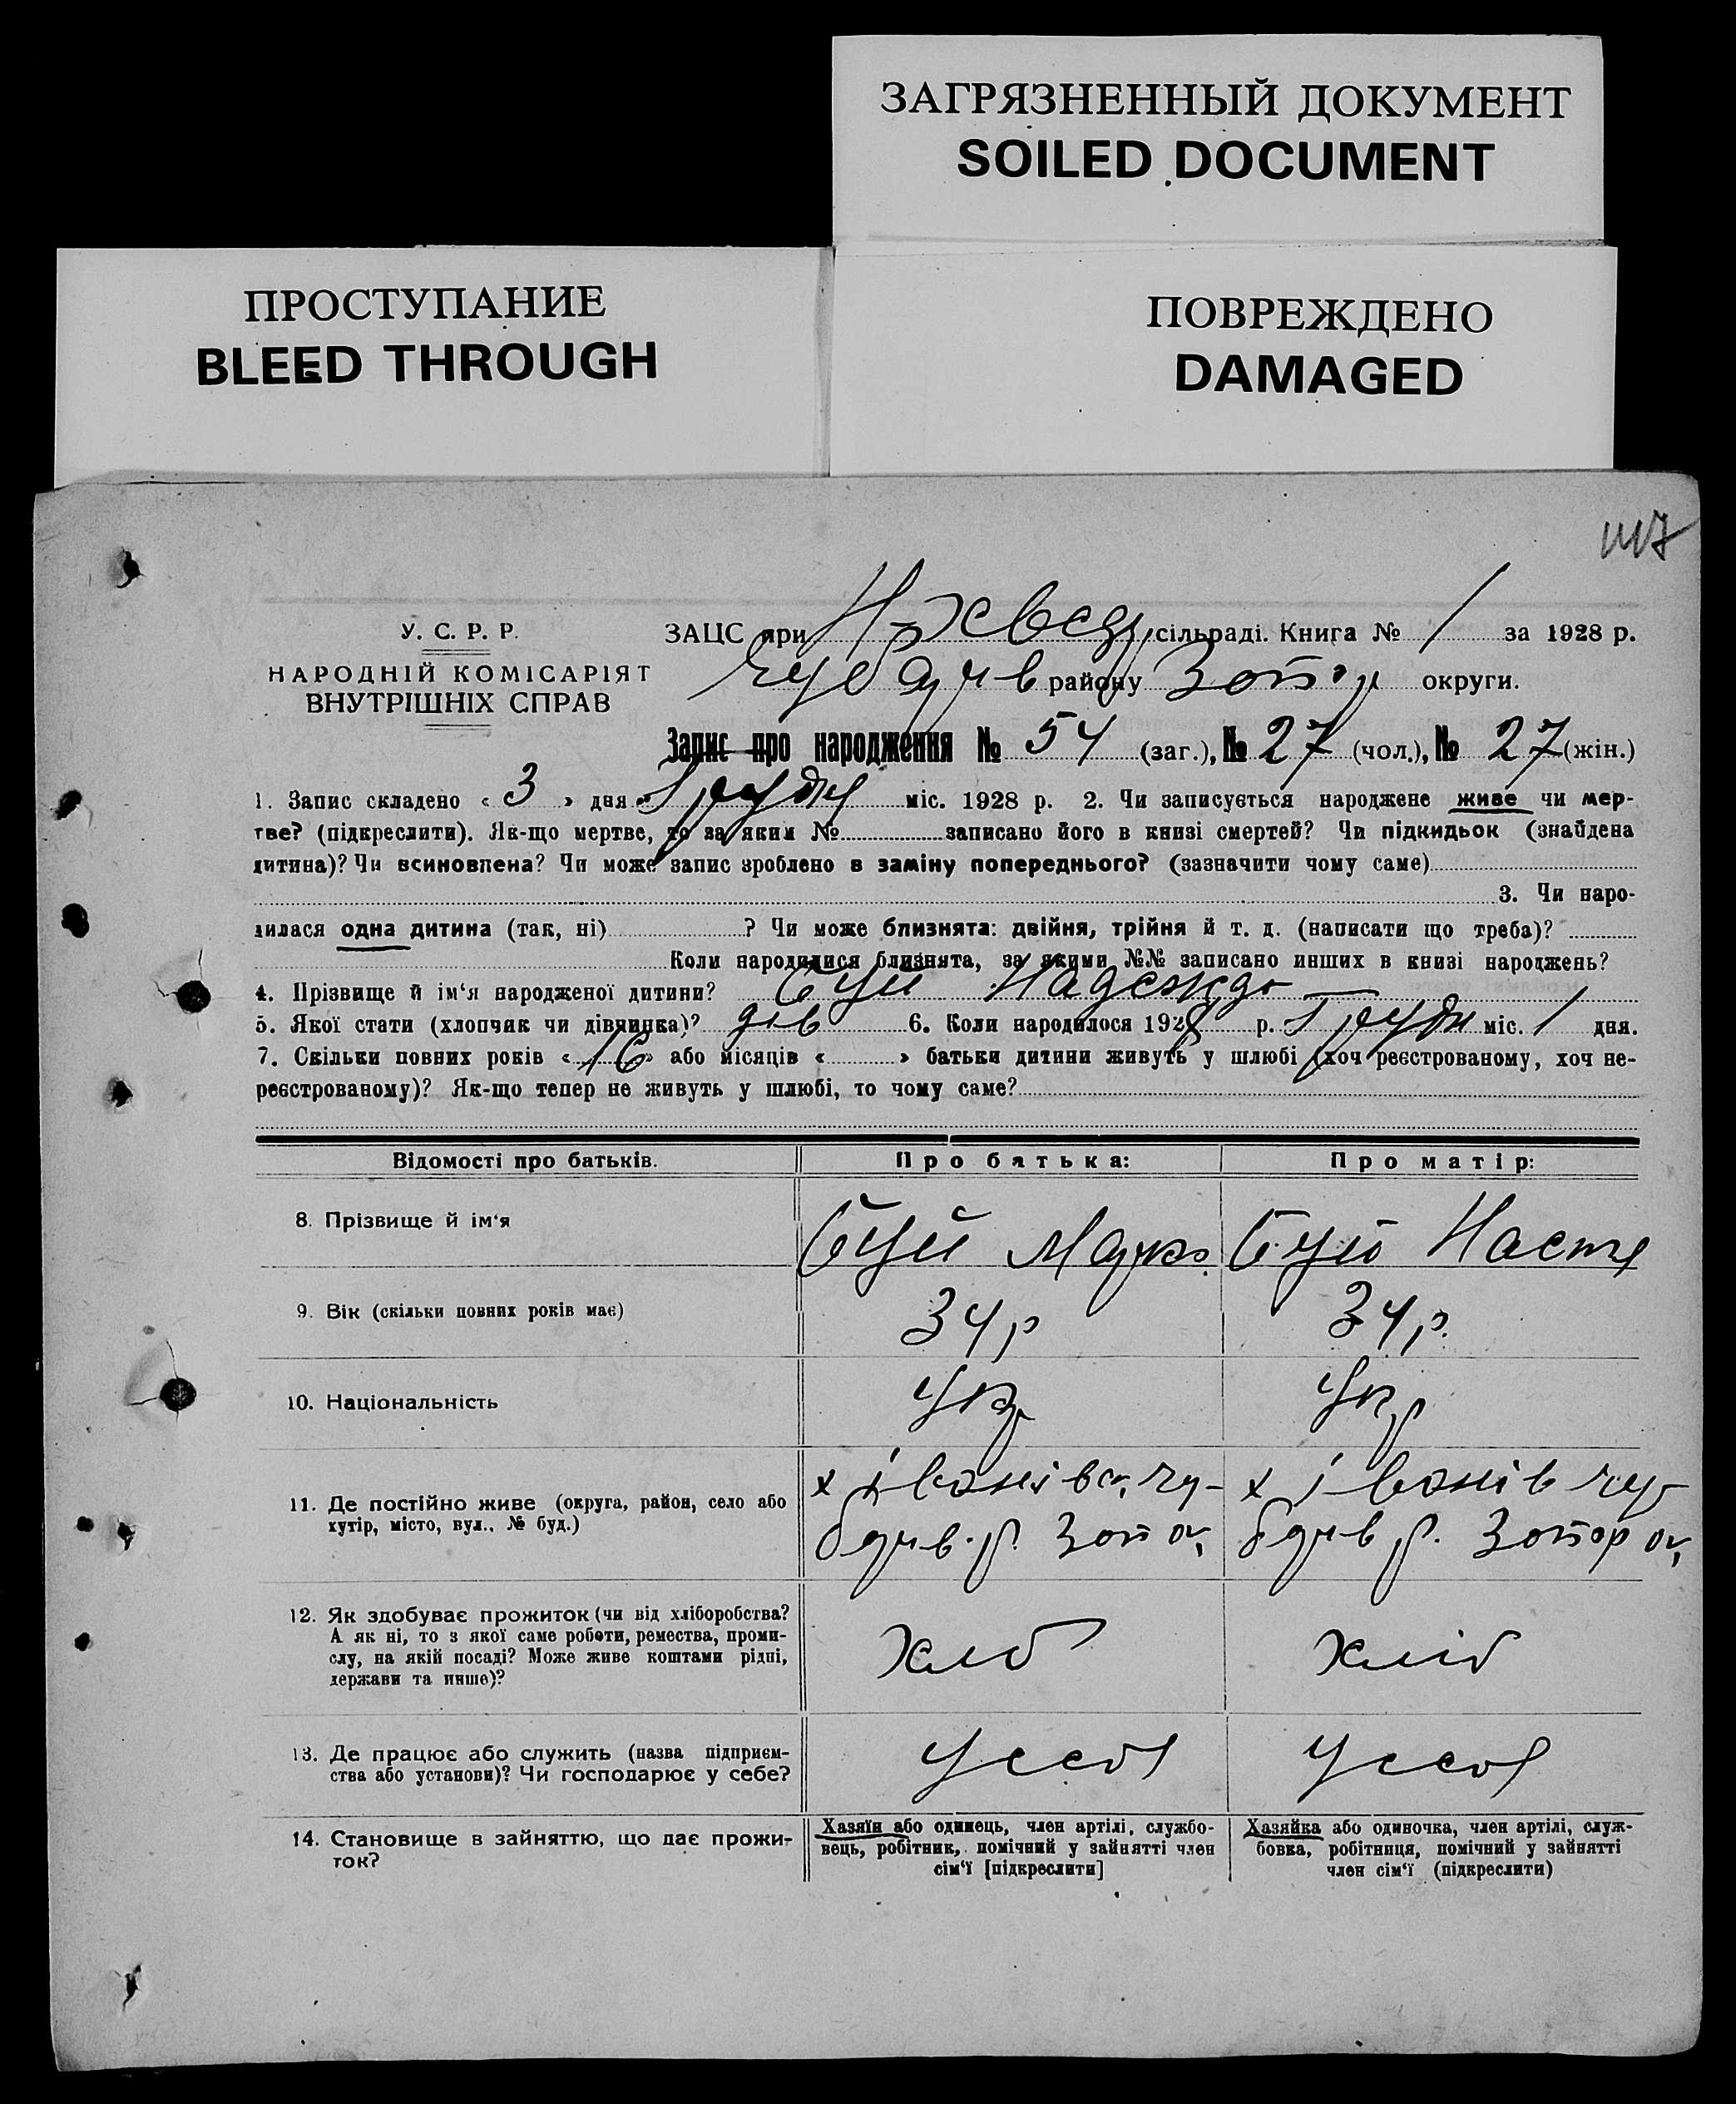 ЗАГРЯЗНЕННЫЙ ДОКУМЕНТ
SOILED DOCUMENT
ПРОСТУПАНИЕ
BLEED THROUGH
ПОВРЕЖДЕНО
DAMAGED
У. С. Р. Р.
НАРОДНІЙ КОМІСАРІЯТ
ВНУТРІШНІХ СПРАВ
ЗАЦС при сільраді. Книга № 1 за 1928 р.
району округи.
Запис про народження № 54 (заг.), № 27 (чол.), № 27 (жін.)
1. Запис складено « 3 » дня Грудня міс. 1928 р. 2. Чи записується народжене живе чи мер-
тве? (підкреслити). Як-що мертве, то за яким № записано його в книзі смертей? Чи підкидьок (знайдена
дитина)? Чи всиновлена? Чи може запис зроблено в заміну попереднього? (зазначити чому саме)
3. Чи наро-
дилася одна дитина (так, ні) ? Чи може близнята: двійня, трійня й т. д. (написати що треба)?
Коли народилися близнята, за якими №№ записано инших в книзі народжень?
4. Прізвище й ім'я народженої дитини? Буй Надежда
5. Якої стати (хлопчик чи дівчинка)? дів 6. Коли народилося 1928 р. Грудн міс. 1 дня.
7. Скільки повних років « 16 » або місяців « » батьки дитини живуть у шлюбі (хоч реєстрованому, хоч не-
реєстрованому)? Як-що тепер не живуть у шлюбі, то чому саме?
Відомості про батьків. Про батька: Про матір:
8. Прізвище й ім'я Буй Марко Буй Настя
9. Вік (скільки повних років має) 34 р 34 р.
10. Національність Укр Укр
11. Де постійно живе (округа, район, село або
хутір, місто, вул., № буд.)
х Іванівськ, Чу- х Іванів Чу-
барів. р. Зап ок, барів р. Запор ок,
12. Як здобуває прожиток (чи від хліборобства?
А як ні, то з якої саме роботи, ремества, проми-
слу, на якій посаді? Може живе коштами рідні,
держави та инше)?
хліб хліб
13. Де працює або служить (назва підприєм-
ства або установи)? Чи господарює у себе?
У себе У себе
14. Становище в зайняттю, що дає прожи-
ток?
Хазяїн або одинець, член артілі, службо-
вець, робітник, помічний у зайнятті член
сім'ї [підкреслити]
Хазяйка або одиночка, член артілі, служ-
бовка, робітниця, помічний у зайнятті
член сім'ї (підкреслити)